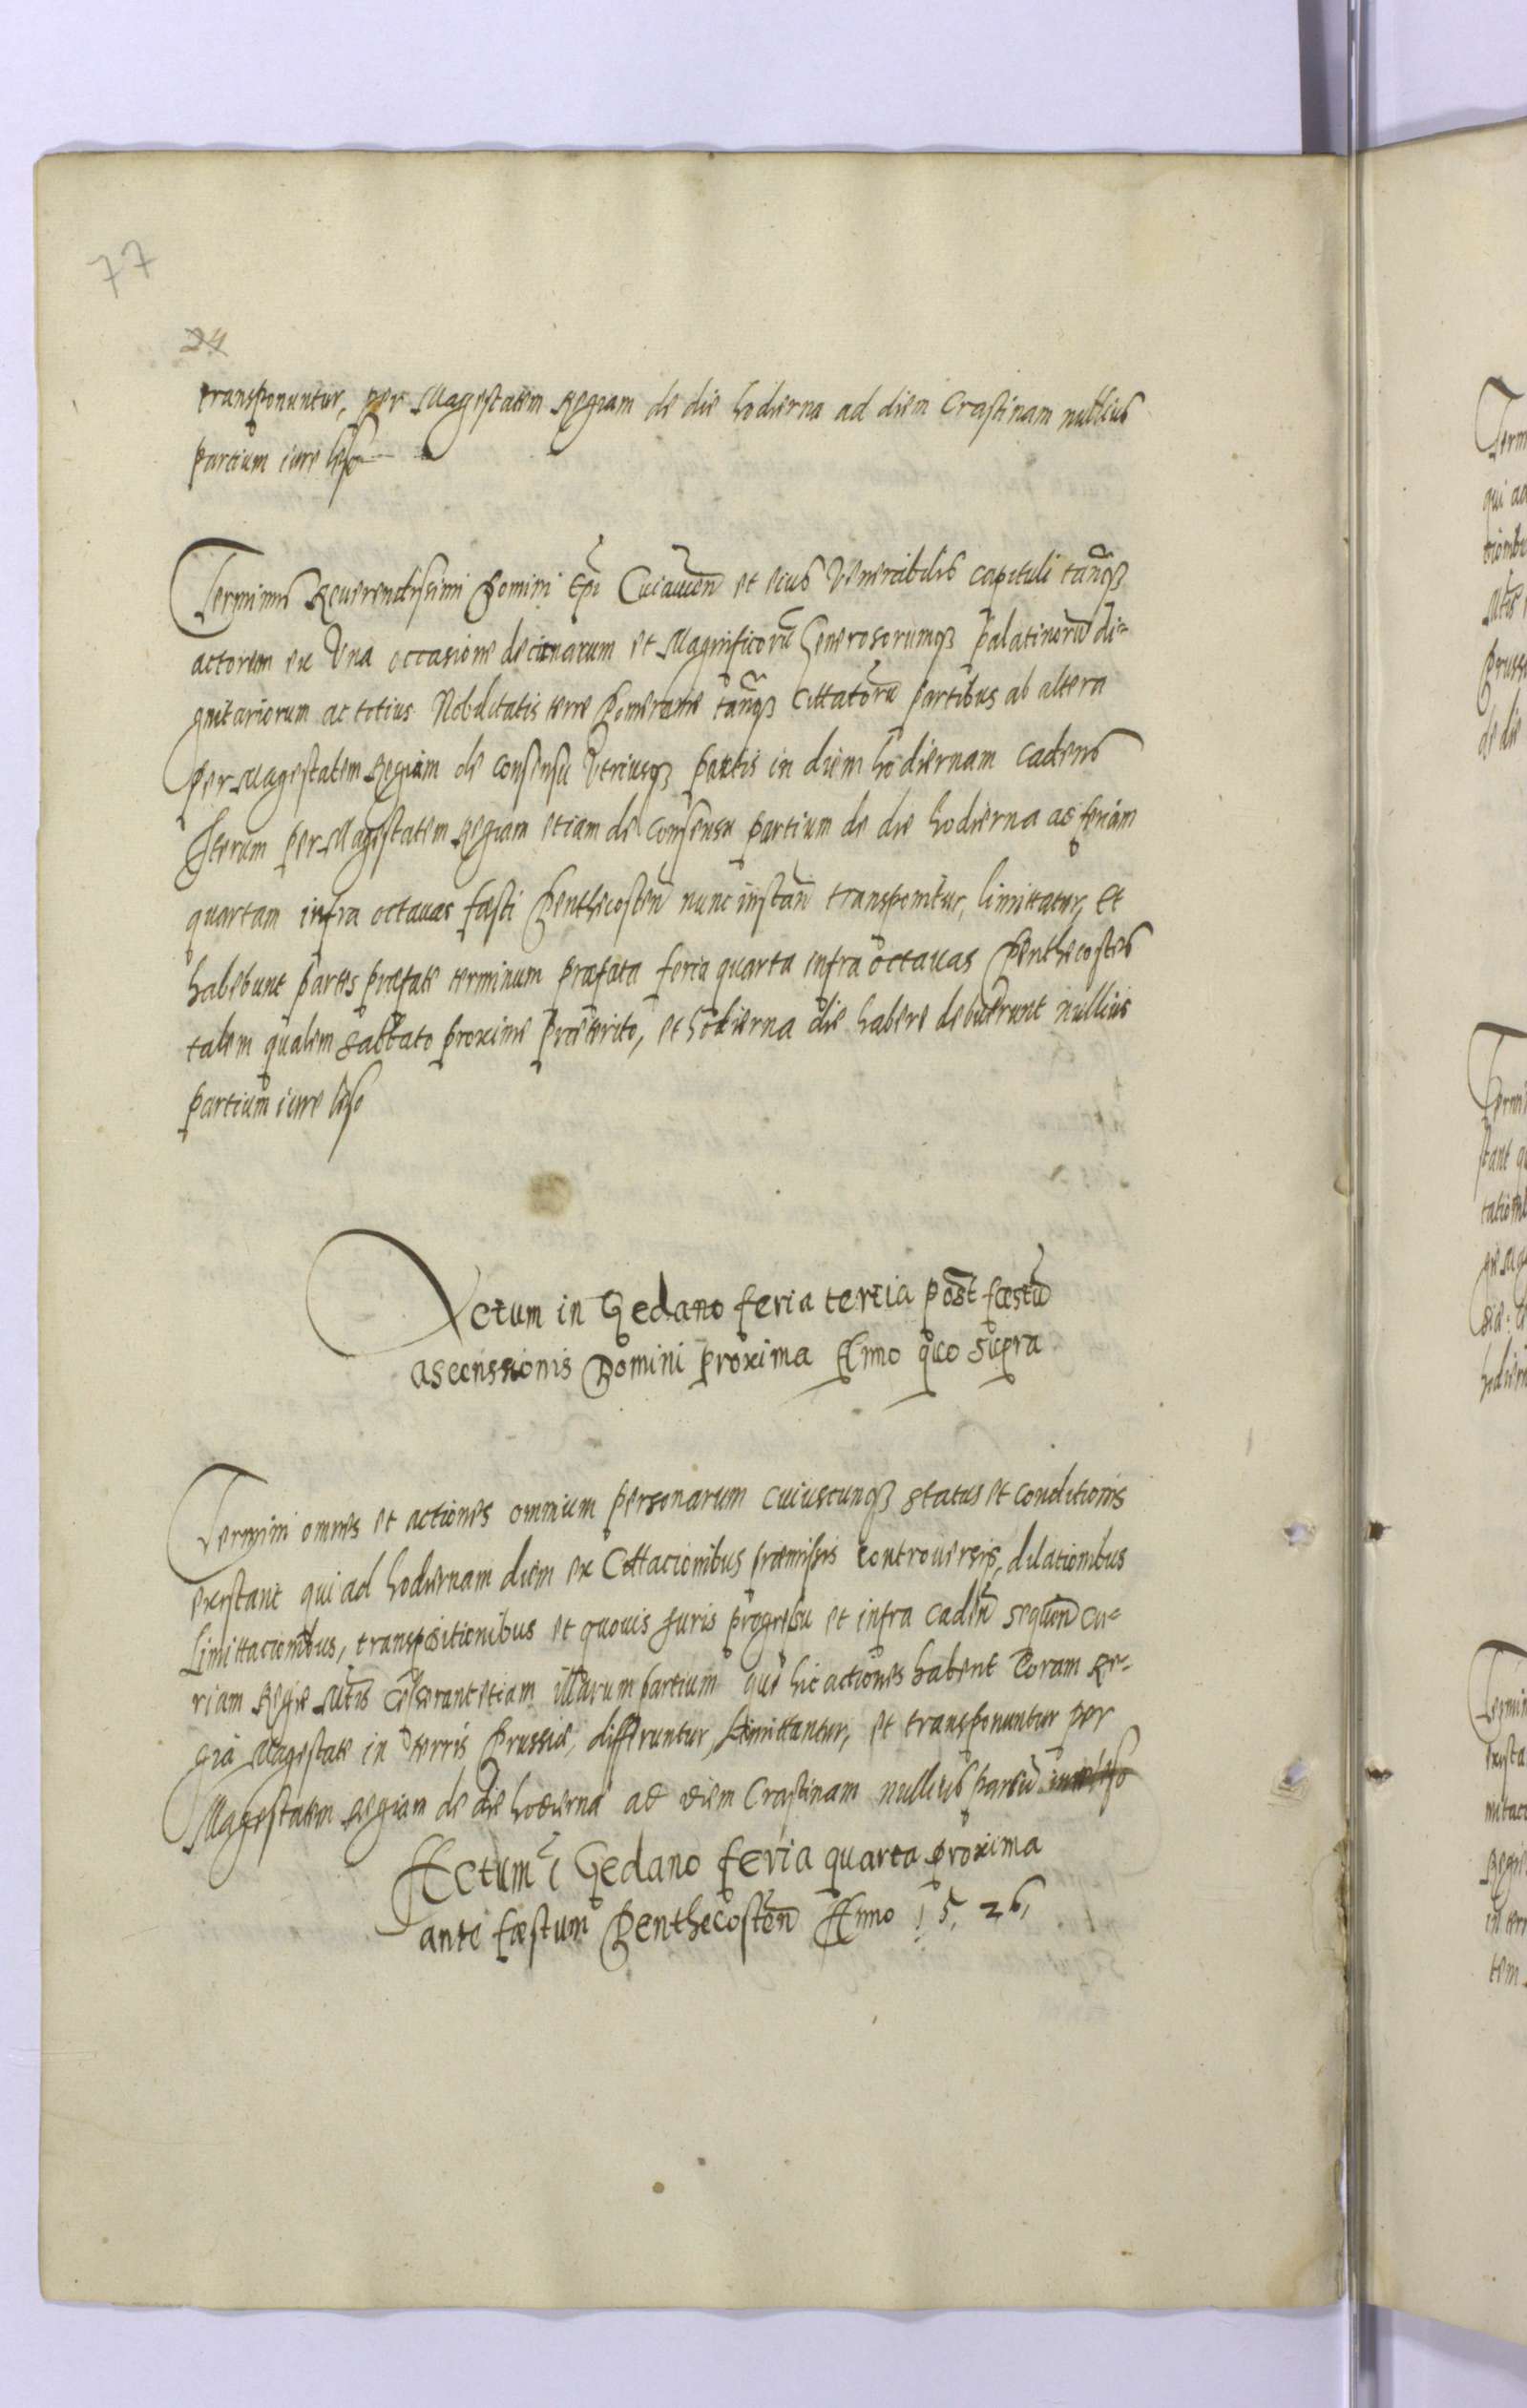 77
24
transponuntur, per Magestatem Regiam de die hodierna ad diem Crastinam nullius
partium iure leso
Terminus Reuerendissimi Domini Epi Cuiauien et eius Venerabilis capituli tanq3
actorem ex Vna occasione decimarum et Magnificoru Generosorumq3 palatinoru di-
gnitariorum ac totius Nobilitatis terre Pomeranie tanq3 Cittatoru partibus ab altera
per Magestatem Regiam de consensu Vtriusq3 partis in diem hodiernam cadens
Iterum per Magestatem Regiam etiam de consensu partium de die hodierna ad feriam
quartam infra octauas fæsti Penthecosten nunc instan transponitur, limittatur, Et
habebunt partes præfate terminum præfata feria quarta infra octauas Penthecostes
talem qualem Sabbato proxime præterito, et hodierna die habere debuerunt nullius
partium iure leso
Actum in Gedano feria tertia post fæstu
ascenssionis Domini proxima Anno quo supra
Termini omnes et actiones omnium personarum cuiuscunq3 status et conditionis
existant qui ad hodiernam diem ex Cittacionibus præmissis controuersis, dilationibus
Limittacionibus, transpositionibus et quouis Iuris progressu et infra caden sequen cu-
riam Regie Mtis cesserant etiam illarum partium que hic actiones habent Coram Re-
gia Magestate in terris Prussiæ, differuntur, Limittantur, et transponuntur per
Magestatem Regiam de die hodierna ad diem Crastinam nullius partiu iure leso
Actum i Gedano feria quarta proxima
ante fæstum Penthecosten Anno 1526